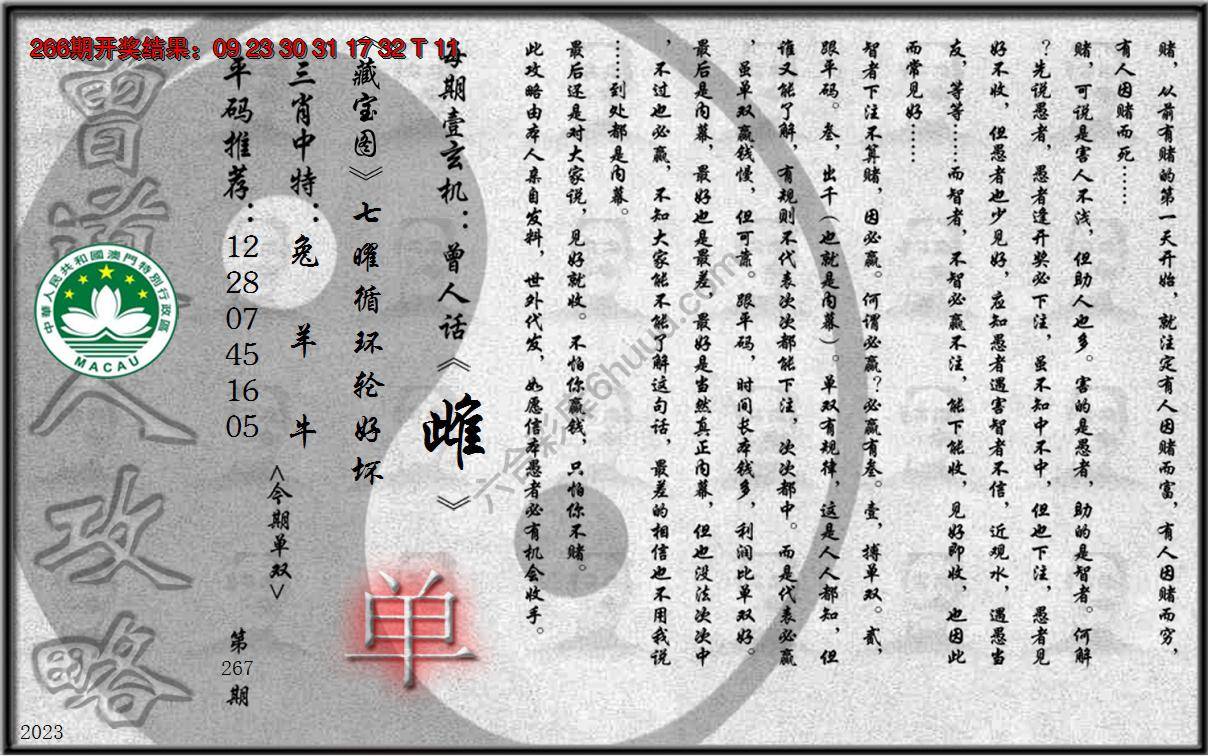 266期开奖结果：09 23 30 31 17 32 T 11
赌，从前有赌的第一天开始，就注定有人因赌而富，有人因赌而穷，
有人因赌而死……
赌，可说是害人不浅，但助人也多。害的是愚者，助的是智者。何解
？先说愚者，愚者逢开奖必下注，虽不知中不中，但也下注，愚者见
好不收，但愚者也少见好，应知愚者遇害智者不信，近观水，遇愚当
友，等等……而智者，不智必赢不注，能下能收，见好即收，也因此
而常见好……
智者下注不算赌，因必赢。何谓必赢？必赢有叁。壹，搏单双。贰，
跟平码。叁，出千（也就是内幕）。单双有规律，这是人人都知，但
谁又能了解，有规则不代表次次都能下注，次次都中。而是代表必赢
，虽单双赢钱慢，但可靠。跟平码，时间长本钱多，利润比单双好。
最后是内幕，最好也是最差，最好是当然真正内幕，但也没法次次中
，不过也必赢，不知大家能不能了解这句话，最差的相信也不用我说
……到处都是内幕。
最后还是对大家说，见好就收。不怕你赢钱，只怕你不赌。
此攻略由本人亲自发料，世外代发，如愿信本愚者必有机会收手。
每期壹玄机：曾人话《雌》
《藏宝图》七曜循环轮好坏
三肖中特：兔 羊 牛
平码推荐：12 28 07 45 16 05
<今期单双>
单
第267期
曾道人攻略
中華人民共和國澳門特別行政區
MACAU
六合彩库6huuu.com
2023